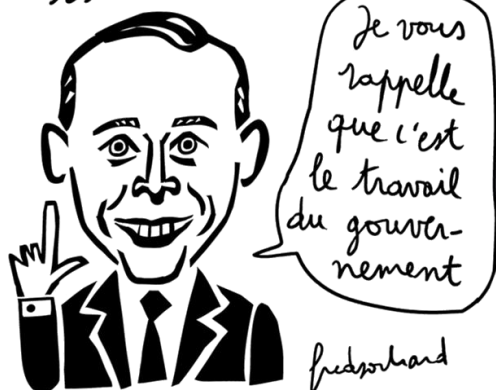 Je vous
rappelle
que c'est
le travail
du gouver-
nement